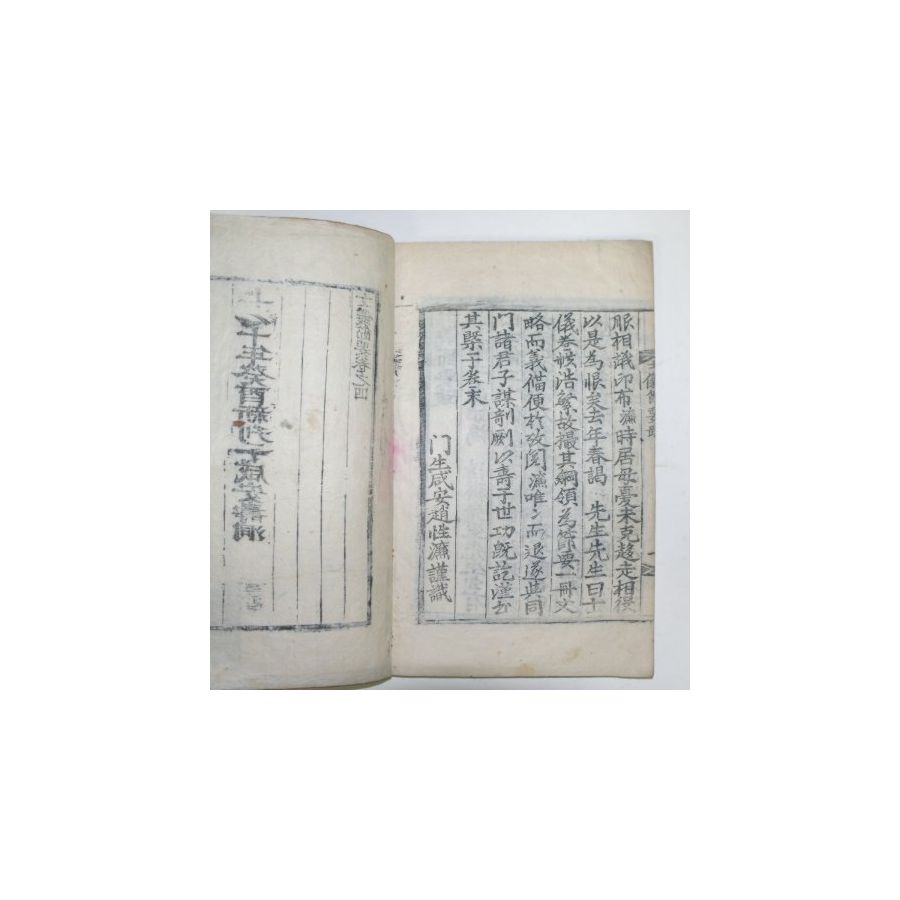 服相議印布濂時居母憂未克趍走相役
以是為恨矣去年春謁 先生先生曰士
儀卷袠浩繁故撮其綱領為節要一冊文
略而義備便於攷閱濂唯〻而退遂與同
門諸君子謀剞劂以壽于世功旣訖謹书
其槩于卷末
門生咸安趙性濂謹識
士儀節要卷之四
年癸酉新刊